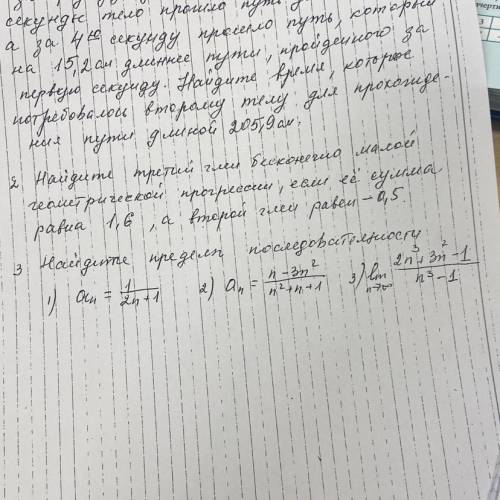 секунды тело прошло путь
а за 4ую секунду прошло путь, который
на 15,2 см длиннее пути, пройденного за
первую секунду. Найдите время, которое
потребовалось второму телу для прохожде-
ния пути длиной 205,9 см.
2. Найдите третий член бесконечно малой
геометрической прогрессии, если её сумма
равна 1,6, а второй член равен -0,5.
3 Найдите предел последовательности
1) an = 1/(2n+1) 2) an = (n-3n²)/(n²+n+1) 3) lim n→∞ (2n³+3n²-1)/(n³-1)